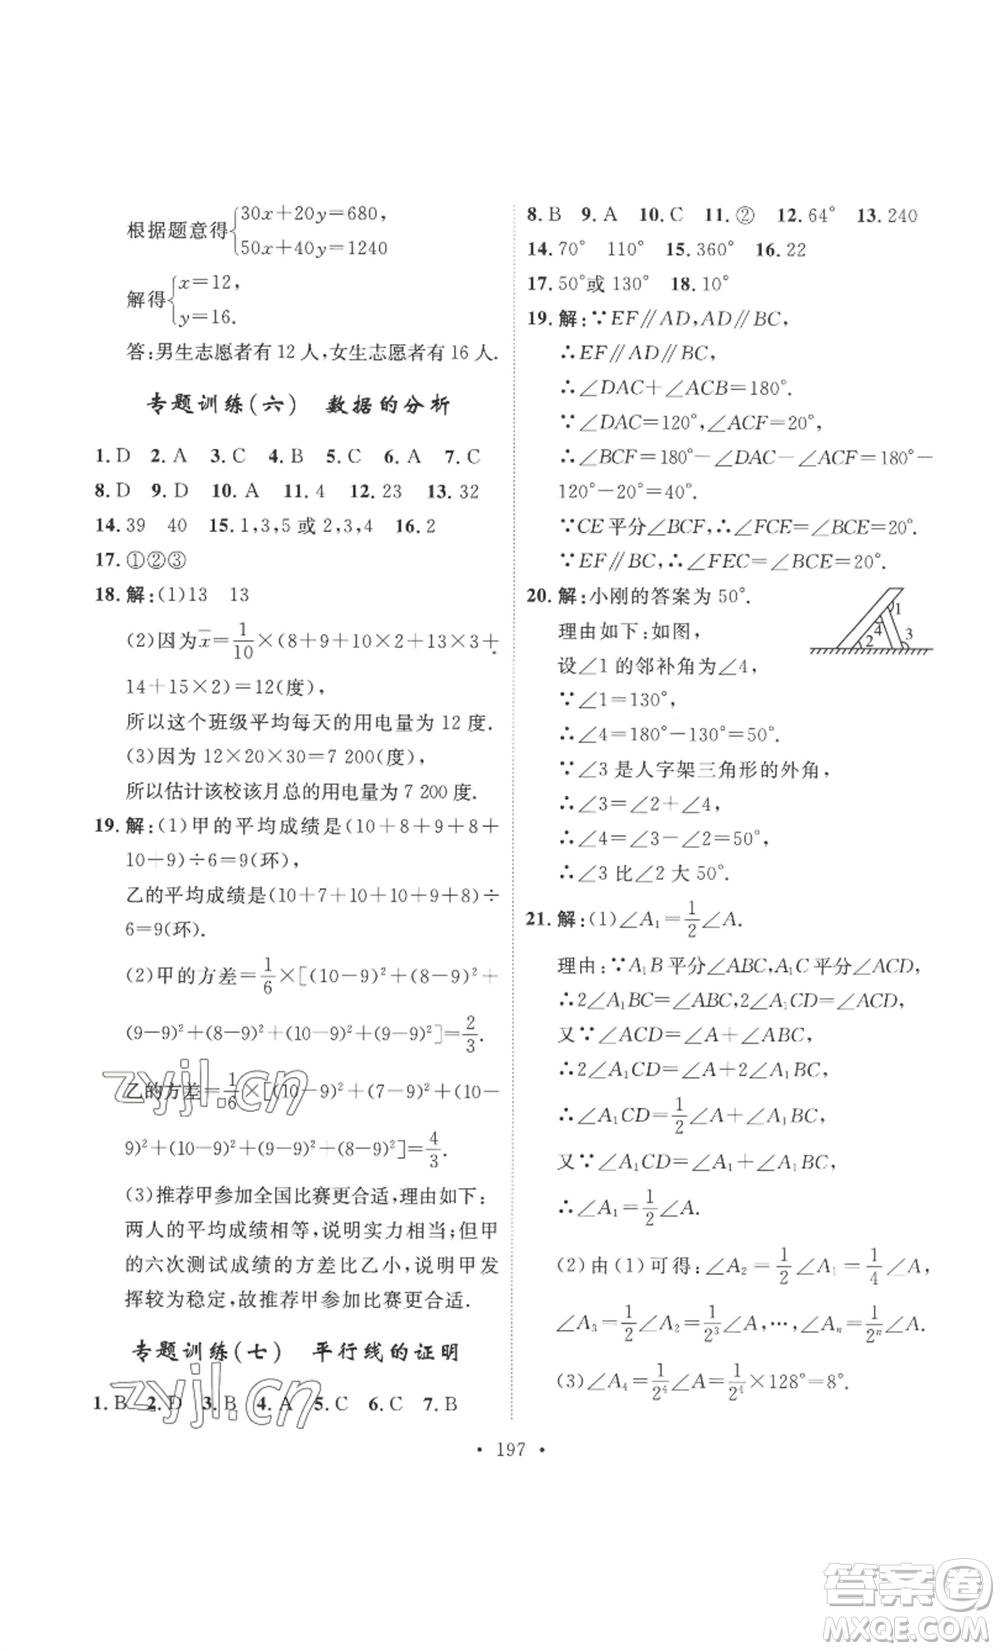 根据题意得{30x+20y=680,
50x+40y=1240
解得{x=12,
y=16.
答:男生志愿者有 12 人,女生志愿者有 16 人.
专题训练(六) 数据的分析
1. D 2. A 3. C 4. B 5. C 6. A 7. C
8. D 9. D 10. A 11. 4 12. 23 13. 32
14. 39 40 15. 1,3,5 或 2,3,4 16. 2
17. ①②③
18. 解:(1)13 13
(2)因为x̄=1/10×(8+9+10×2+13×3+
14+15×2)=12(度),
所以这个班级平均每天的用电量为 12 度.
(3)因为 12×20×30=7 200(度),
所以估计该校该月总的用电量为 7 200 度.
19. 解:(1)甲的平均成绩是(10+8+9+8+
10+9)÷6=9(环),
乙的平均成绩是(10+7+10+10+9+8)÷
6=9(环).
(2)甲的方差=1/6×[(10-9)²+(8-9)²+
(9-9)²+(8-9)²+(10-9)²+(9-9)²]=2/3.
乙的方差=1/6×[(10-9)²+(7-9)²+(10-
9)²+(10-9)²+(9-9)²+(8-9)²]=4/3.
(3)推荐甲参加全国比赛更合适,理由如下:
两人的平均成绩相等,说明实力相当;但甲
的六次测试成绩的方差比乙小,说明甲发
挥较为稳定,故推荐甲参加比赛更合适.
专题训练(七) 平行线的证明
1. B 2. D 3. B 4. A 5. C 6. C 7. B
8. B 9. A 10. C 11. ② 12. 64° 13. 240
14. 70° 110° 15. 360° 16. 22
17. 50°或 130° 18. 10°
19. 解:∵EF∥AD,AD∥BC,
∴EF∥AD∥BC,
∴∠DAC+∠ACB=180°.
∵∠DAC=120°,∠ACF=20°,
∴∠BCF=180°-∠DAC-∠ACF=180°-
120°-20°=40°.
∵CE 平分∠BCF,∴∠FCE=∠BCE=20°.
∵EF∥BC,∴∠FEC=∠BCE=20°.
20. 解:小刚的答案为 50°.
理由如下:如图,
设∠1 的邻补角为∠4,
∵∠1=130°,
∴∠4=180°-130°=50°.
∵∠3 是人字架三角形的外角,
∴∠3=∠2+∠4,
∴∠4=∠3-∠2=50°,
∴∠3 比∠2 大 50°.
1
4
2
3
21. 解:(1)∠A₁=1/2∠A.
理由:∵A₁B 平分∠ABC,A₁C 平分∠ACD,
∴2∠A₁BC=∠ABC,2∠A₁CD=∠ACD,
又∵∠ACD=∠A+∠ABC,
∴2∠A₁CD=∠A+2∠A₁BC,
∴∠A₁CD=1/2∠A+∠A₁BC,
又∵∠A₁CD=∠A₁+∠A₁BC,
∴∠A₁=1/2∠A.
(2)由(1)可得:∠A₂=1/2∠A₁=1/4∠A,
∠A₃=1/2∠A₂=1/2³∠A,…,∠Aₙ=1/2ⁿ∠A.
(3)∠A₄=1/2⁴∠A=1/2⁴×128°=8°.
• 197 •
zyjl.cn
zyjl.cn
答案卷
MXQE.COM